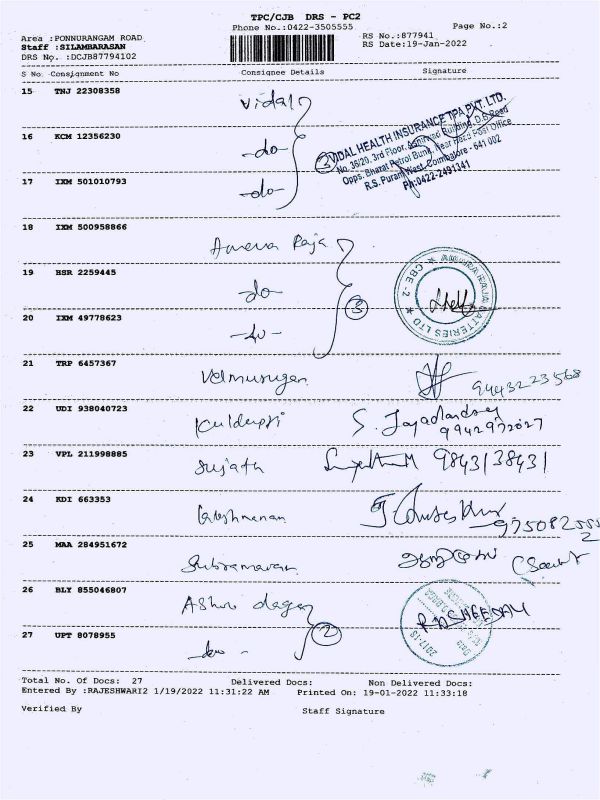 TPC/CJB DRS - PC2
Phone No.:0422-3505555
Page No.:2
Area :PONNURANGAM ROAD
RS No.:877941
Staff :SILAMBARASAN
RS Date:19-Jan-2022
DRS No. :DCJB87794102
S No. Consignment No Consignee Details Signature
15 TNJ 22308358 Vidal
VIDAL HEALTH INSURANCE TPA PVT. LTD.
No. 36/20, 3rd Floor, Building, D.B.Road
Opps. Bharat Petrol Bunk, Near Head Post Office
R.S. Puram West, Coimbatore - 641 002
PH:0422-2491341
16 KCM 12356230 -do-
3
17 IXM 501010793 -do-
18 IXM 500958866 Amera Raja
19 BSR 2259445 do
3
AMARA RAJA BATTERIES LTD ★ CBE - 2 ★
20 IXM 49778623 -do-
21 TRP 6457367 Velmurugan
9443223568
22 UDI 938040723 Kuldeep
9942972027
23 VPL 211998885 Sujath 9843138431
24 KDI 663353 Krishnanan
25 MAA 284951672 Subramanan
26 BLY 855046807 Ashw
RASHEEDAM
27 UPT 8078955 2
Total No. Of Docs: 27 Delivered Docs: Non Delivered Docs:
Entered By :RAJESHWARI2 1/19/2022 11:31:22 AM Printed On: 19-01-2022 11:33:18
Verified By Staff Signature